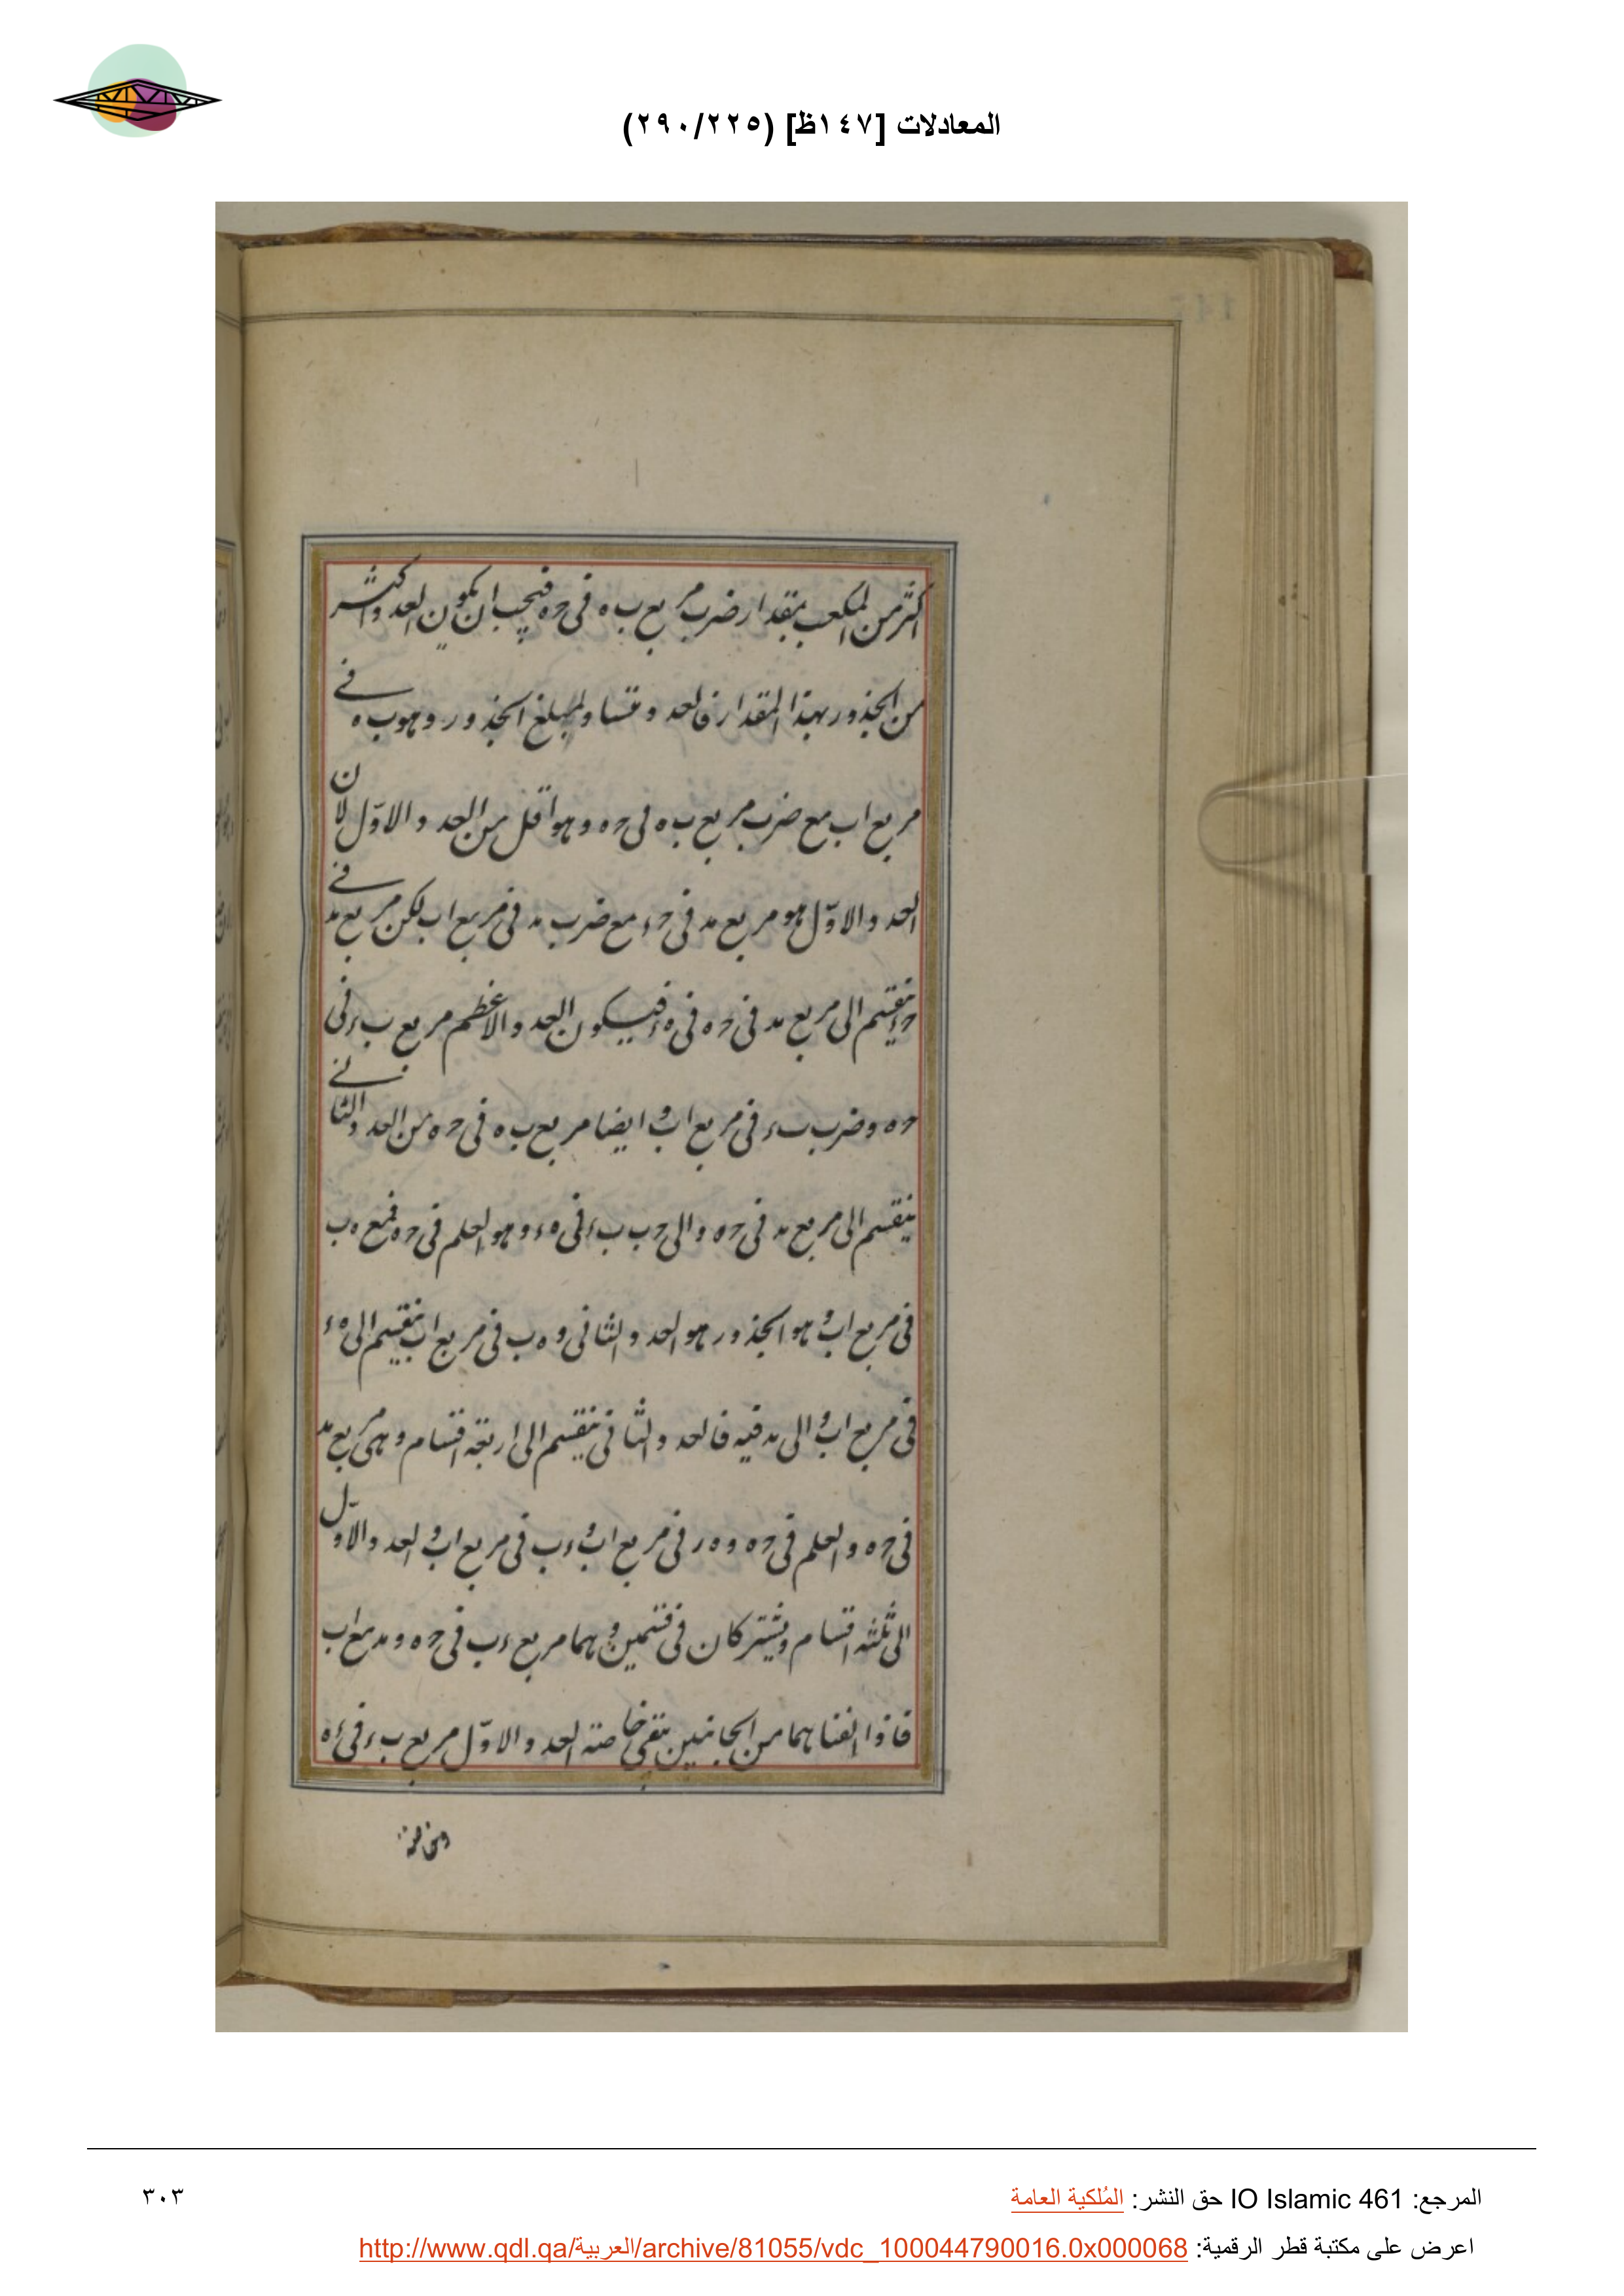 المعادلات [١٤٧ظ] (٢٩٠/٢٢٥)
اكثر من المكعب بمقدار ضرب مربع ب ه فى ح ه فيجب ان يكون العدد اكثر
من الجذور بهذا المقدار فالعدد مساو لمبلغ الجذور وهو ب ه فى
مربع اب مع ضرب مربع ب ه فى ح ه وهو اقل من العدد الاوّل لان
العدد الاوّل هو مربع مد فى حء مع ضرب مد فى مربع اب لكن مربع مد فى
حء ينقسم الى مربع مد فى ح ه فى ه ء فيكون العدد الاعظم مربع ب ء فى
ح ه وضرب ب ء فى مربع اب وايضا مربع ب ه فى ح ه من العدد الثانى
ينقسم الى مربع مد فى ح ه والى ح ب ب ء فى ه ء وهو العلم فى ح ه فمع ه ب
فى مربع اب وهو الجذور هو العدد الثانى و ه ب فى مربع اب ينقسم الى ه ء
فى مربع اب والى مد فيه فالعدد الثانى ينقسم الى اربعة اقسام وهى مربع مد
فى ح ه والعلم فى ح ه و ه ر فى مربع اب و ء ب فى مربع اب والعدد الاوّل
الى ثلثه اقسام ويشتركان فى قسمين وهما مربع ء ب فى ح ه و مد مع اب
فاذا القناهما من الجانبين بقى خاصته العدد الاوّل مربع ب ء فى ء ه
ومن خاصة
المرجع: IO Islamic 461 حق النشر: المُلكية العامة
٣٠٣
اعرض على مكتبة قطر الرقمية: http://www.qdl.qa/العربية/archive/81055/vdc_100044790016.0x000068